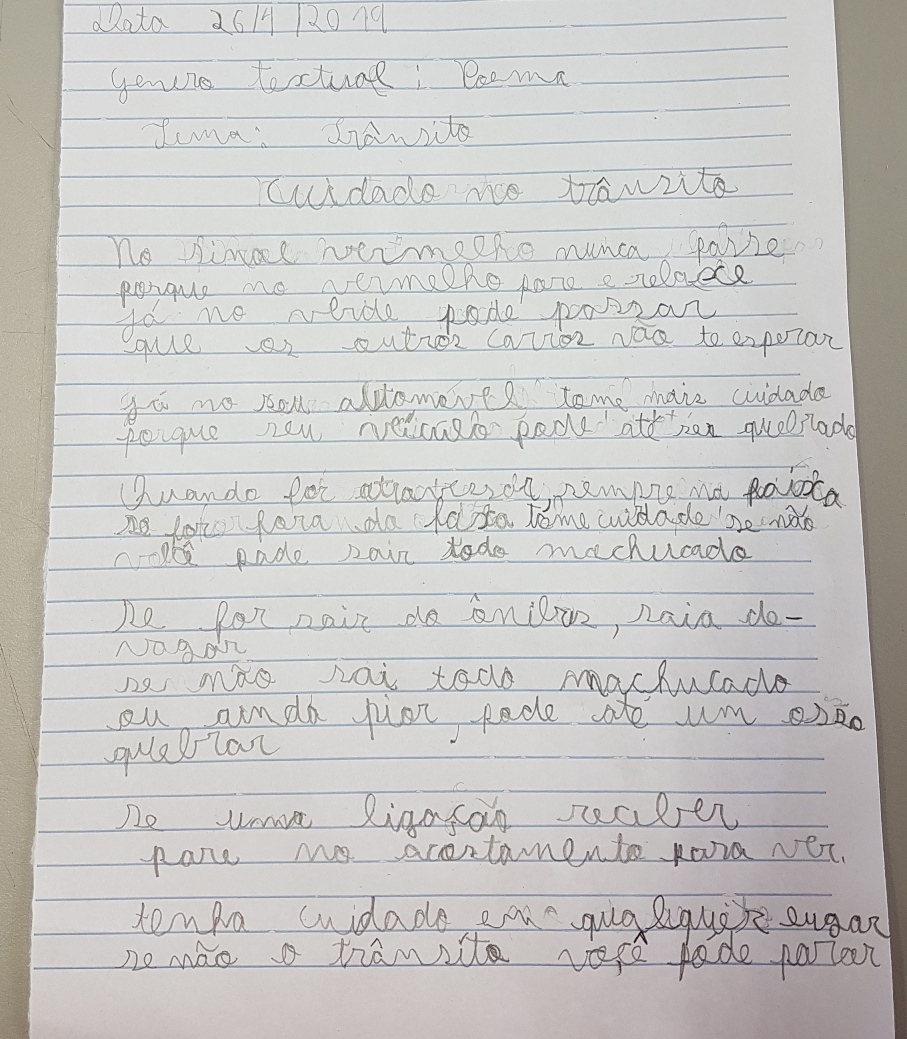 Data 26/4/2019
Genero textual: Poema
Tema: Trânsito
Cuidado no trânsito
No sinal vermelho nunca passe
porque no vermelho pare e relaxe
Já no verde pode passar
que os outros carros vão te esperar
Já no seu altomovel tome mais cuidado
porque seu veículo pode até ser quebrado
Quando for atravessar, sempre na faixa
se for fora da faixa tome cuidade se não
você pode sair todo machucado
Se for sair do ônibus, saia de-
vagar
se não sai todo machucado
ou ainda pior, pode até um osso
quebrar
Se uma ligação receber
pare no acostamento para ver.
tenha cuidado em qualquer lugar
se não o trânsito você pode parar